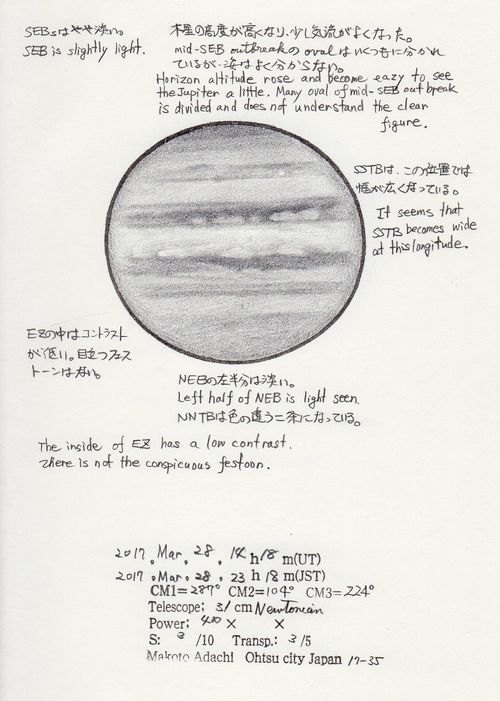 SEBsはやや淡い。
SEB is slightly light.
木星の高度が高くなり、少し気流がよくなった。
mid-SEB outbreakのovalはいくつもに分かれ
ているが、姿はよく分からない。
Horizon altitude rose and become eazy to see
the Jupiter a little. Many oval of mid-SEB out break
is divided and does not understand the clear
figure.
SSTBは、この位置では
幅が広くなっている。
It seems that
SSTB becomes wide
at this longitude.
EZの中はコントラスト
が低い。目立つフェス
トーンはない。
NEBの左半分は淡い。
Left half of NEB is light seen.
NNTBは色の違う二条になっている。
The inside of EZ has a low contrast.
There is not the conspicuous festoon.
2017, Mar, 28, 14 h 18 m(UT)
2017, Mar, 28, 23 h 18 m(JST)
CM1=287° CM2=104° CM3=224°
Telescope; 31 cm Newtonian
Power; 400 × ×
S: 3 /10 Transp.; 3 /5
Makoto Adachi Ohtsu city Japan 17-35